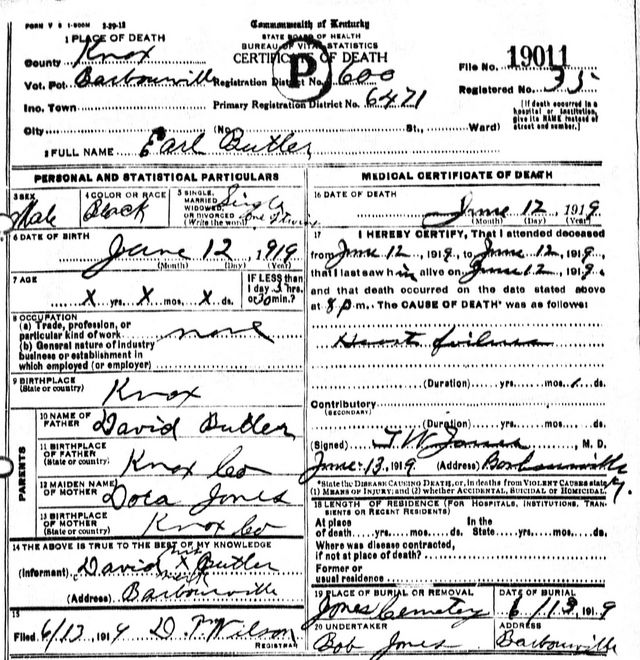 FORM V S 1-500M 2-29-12
Commonwealth of Kentucky
STATE BOARD OF HEALTH
BUREAU OF VITAL STATISTICS
CERTIFICATE OF DEATH
P
1 PLACE OF DEATH
County Knox
File No. 19011
Vot. Pct. Barbourville Registration District No. 600
Registered No. 35
Inc. Town Primary Registration District No. 6471
[If death occurred in a hospital or institution, give its NAME instead of street and number.]
City (No. St., Ward)
2 FULL NAME Earl Butler
PERSONAL AND STATISTICAL PARTICULARS
3 SEX Male
4 COLOR OR RACE Black
5 SINGLE, MARRIED, WIDOWED, OR DIVORCED (Write the word) Single
one of twins
6 DATE OF BIRTH
June 12, 1919
(Month) (Day) (Year)
7 AGE
X yrs. X mos. X ds.
IF LESS than 1 day 3 hrs. or 30 min.?
8 OCCUPATION
(a) Trade, profession, or
particular kind of work none
(b) General nature of industry
business or establishment in
which employed (or employer)
9 BIRTHPLACE
(State or country) Knox
PARENTS
10 NAME OF FATHER David Butler
11 BIRTHPLACE OF FATHER (State or country) Knox Co
12 MAIDEN NAME OF MOTHER Dora Jones
13 BIRTHPLACE OF MOTHER (State or country) Knox Co
14 THE ABOVE IS TRUE TO THE BEST OF MY KNOWLEDGE
(Informant) David X Butler
his mark
(Address) Barbourville
15
Filed 6/13, 1919 D. T. Wilson
REGISTRAR
MEDICAL CERTIFICATE OF DEATH
16 DATE OF DEATH
June 12, 1919
(Month) (Day) (Year)
17 I HEREBY CERTIFY, That I attended deceased
from June 12, 1919, to June 12, 1919,
that I last saw him alive on June 12, 1919,
and that death occurred on the date stated above
at 8 p.m. The CAUSE OF DEATH* was as follows:
Heart failure
(Duration) yrs. mos. 1 ds.
Contributory
(SECONDARY)
(Duration) yrs. mos. ds.
(Signed) J W Jones, M. D.
June 13, 1919 (Address) Barbourville Ky.
*State the DISEASE CAUSING DEATH, or, in deaths from VIOLENT CAUSES state
(1) MEANS OF INJURY; and (2) whether ACCIDENTAL, SUICIDAL or HOMICIDAL.
18 LENGTH OF RESIDENCE (FOR HOSPITALS, INSTITUTIONS, TRANSIENTS OR RECENT RESIDENTS)
At place of death yrs. mos. ds. In the State yrs. mos. ds.
Where was disease contracted,
if not at place of death?
Former or
usual residence
19 PLACE OF BURIAL OR REMOVAL
Jones Cemetery
DATE OF BURIAL
6/13, 1919
20 UNDERTAKER
Bob Jones
ADDRESS
Barbourville